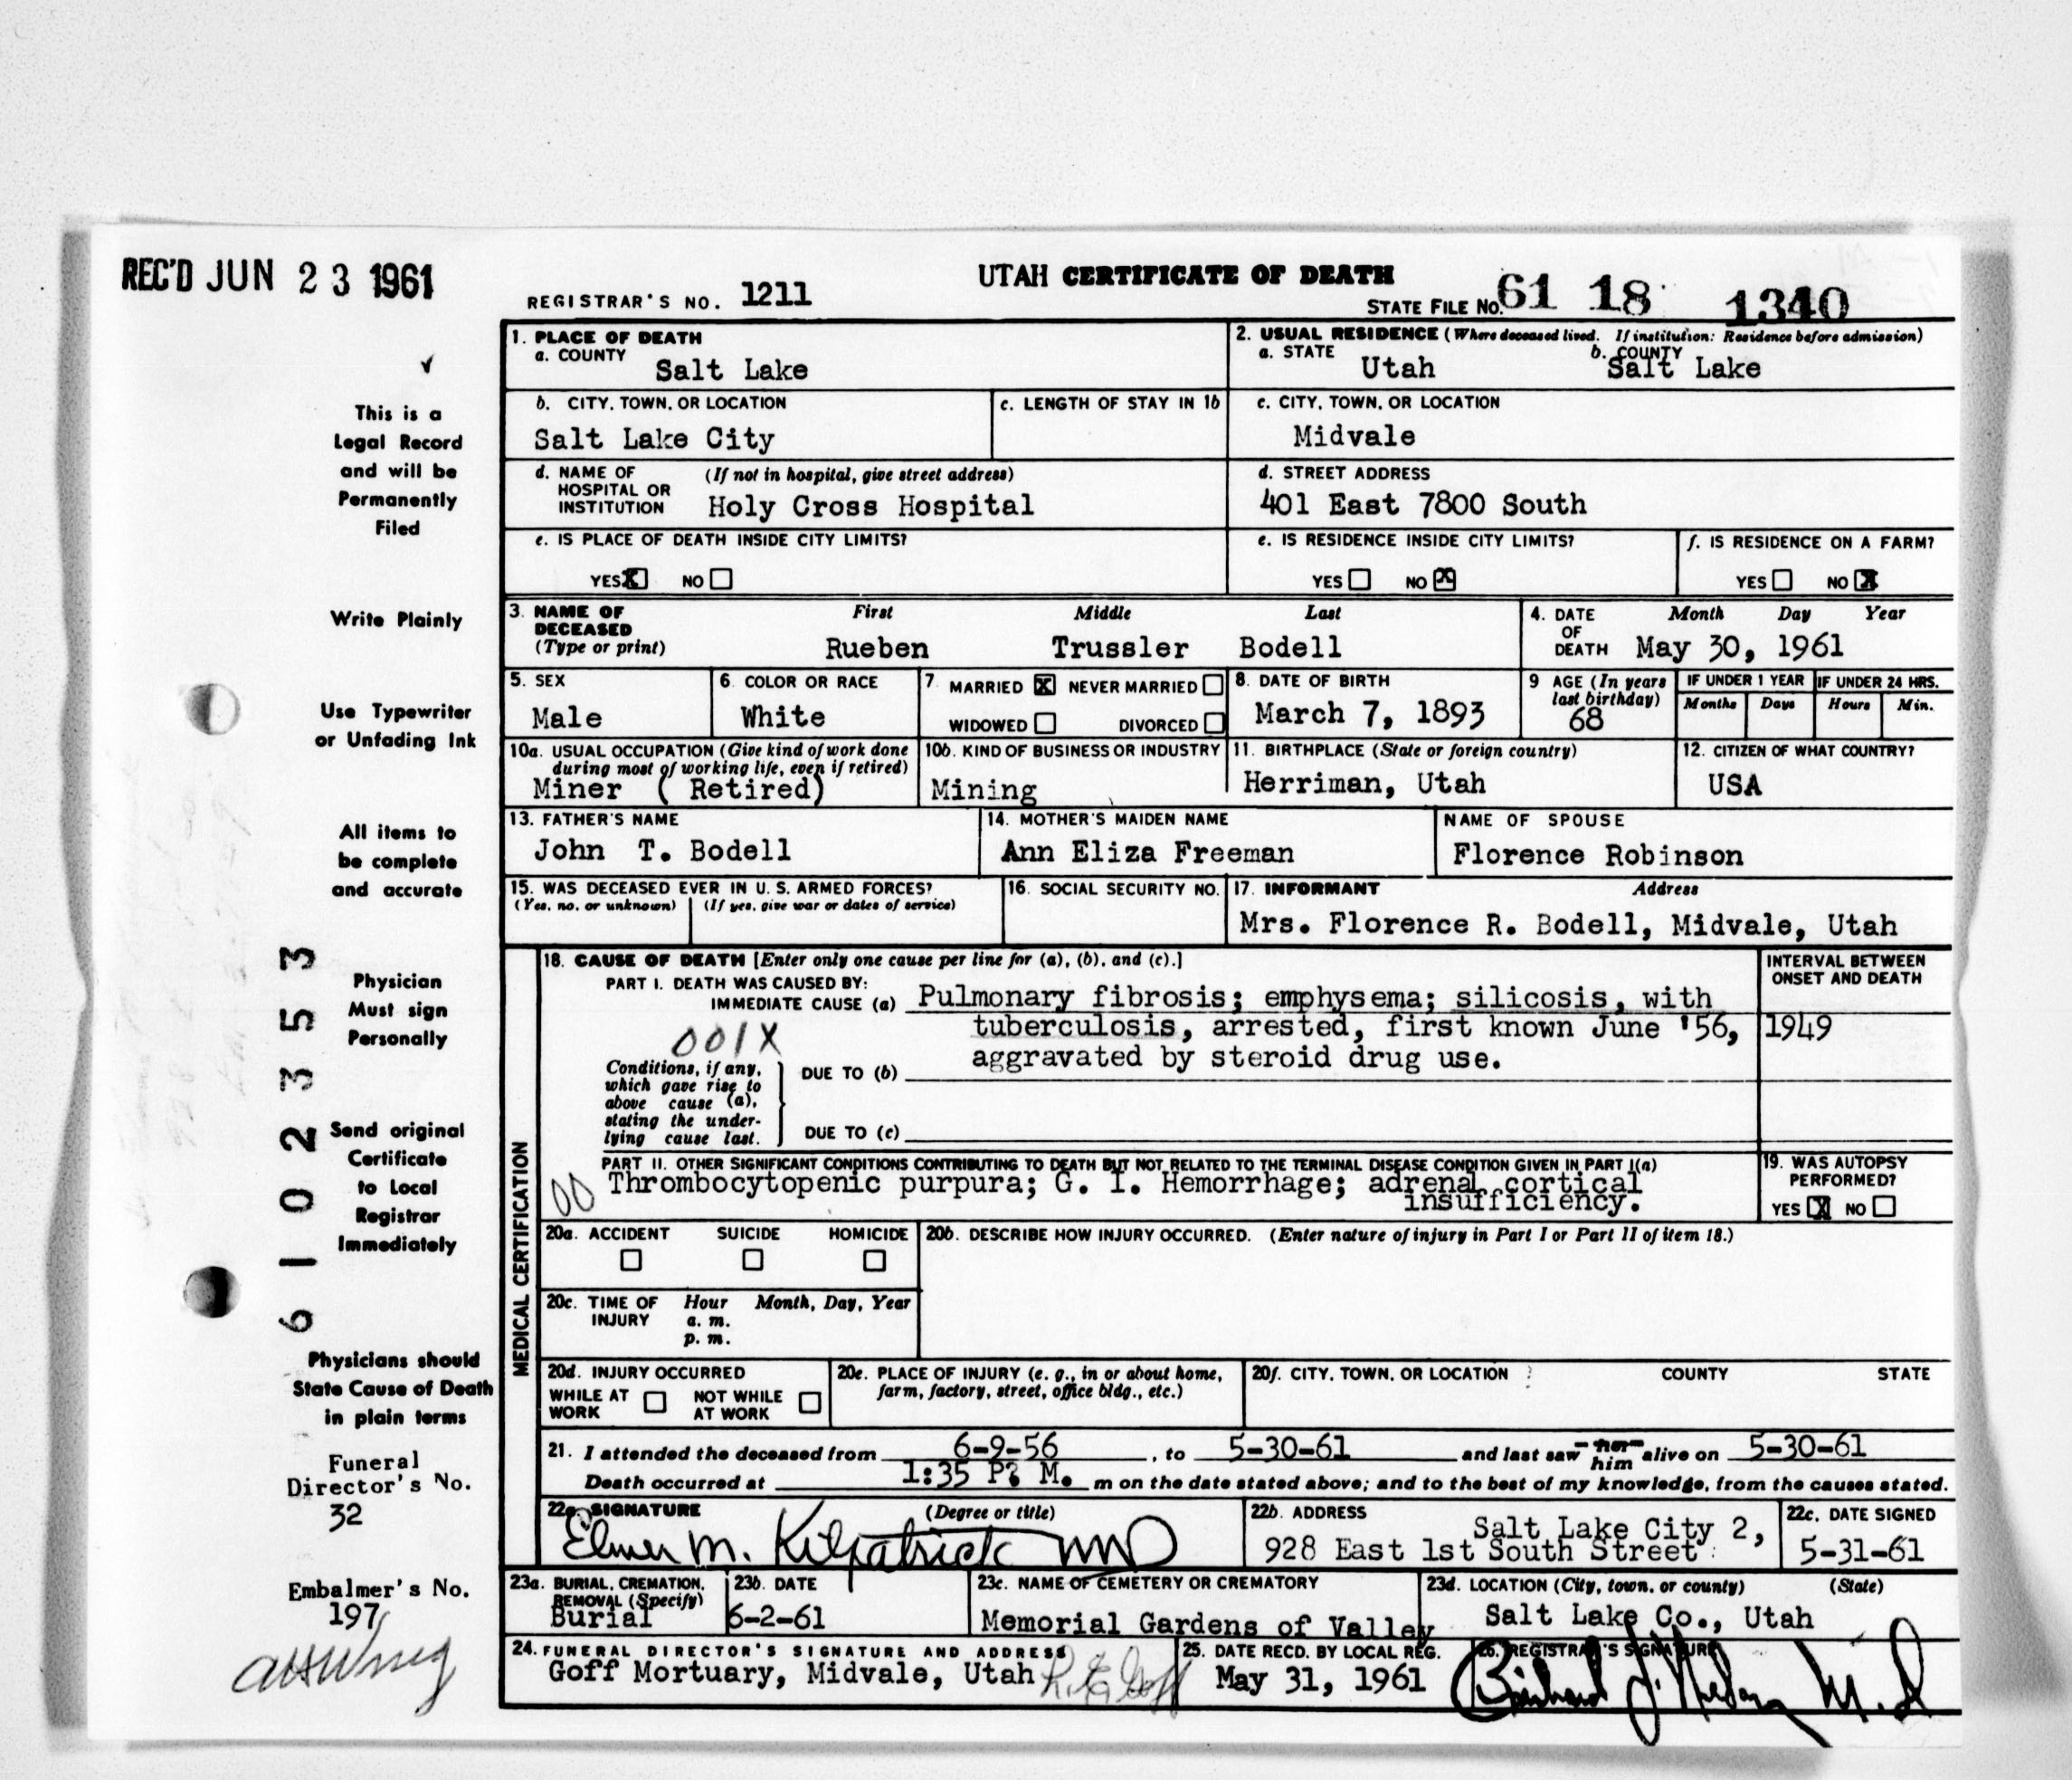 REC'D JUN 23 1961
UTAH CERTIFICATE OF DEATH
REGISTRAR'S NO. 1211
STATE FILE NO. 61 18 1340
This is a
Legal Record
and will be
Permanently
Filed
Write Plainly
Use Typewriter
or Unfading Ink
All items to
be complete
and accurate
Physician
Must sign
Personally
Send original
Certificate
to Local
Registrar
Immediately
Physicians should
State Cause of Death
in plain terms
Funeral
Director's No.
32
Embalmer's No.
197
6102353
1. PLACE OF DEATH
a. COUNTY Salt Lake
2. USUAL RESIDENCE (Where deceased lived. If institution: Residence before admission)
a. STATE Utah b. COUNTY Salt Lake
b. CITY, TOWN, OR LOCATION
Salt Lake City
c. LENGTH OF STAY IN 1b
c. CITY, TOWN, OR LOCATION
Midvale
d. NAME OF HOSPITAL OR INSTITUTION (If not in hospital, give street address)
Holy Cross Hospital
d. STREET ADDRESS
401 East 7800 South
e. IS PLACE OF DEATH INSIDE CITY LIMITS?
YES X NO
e. IS RESIDENCE INSIDE CITY LIMITS?
YES NO X
f. IS RESIDENCE ON A FARM?
YES NO X
3. NAME OF DECEASED (Type or print)
First Middle Last
Rueben Trussler Bodell
4. DATE OF DEATH Month Day Year
May 30, 1961
5. SEX
Male
6. COLOR OR RACE
White
7. MARRIED X NEVER MARRIED
WIDOWED DIVORCED
8. DATE OF BIRTH
March 7, 1893
9 AGE (In years last birthday)
68
IF UNDER 1 YEAR
Months Days
IF UNDER 24 HRS.
Hours Min.
10a. USUAL OCCUPATION (Give kind of work done during most of working life, even if retired)
Miner ( Retired)
10b. KIND OF BUSINESS OR INDUSTRY
Mining
11. BIRTHPLACE (State or foreign country)
Herriman, Utah
12. CITIZEN OF WHAT COUNTRY?
USA
13. FATHER'S NAME
John T. Bodell
14. MOTHER'S MAIDEN NAME
Ann Eliza Freeman
NAME OF SPOUSE
Florence Robinson
15. WAS DECEASED EVER IN U. S. ARMED FORCES?
(Yes, no, or unknown) (If yes, give war or dates of service)
16. SOCIAL SECURITY NO.
17. INFORMANT Address
Mrs. Florence R. Bodell, Midvale, Utah
MEDICAL CERTIFICATION
18. CAUSE OF DEATH [Enter only one cause per line for (a), (b), and (c).]
INTERVAL BETWEEN ONSET AND DEATH
PART I. DEATH WAS CAUSED BY:
IMMEDIATE CAUSE (a) Pulmonary fibrosis; emphysema; silicosis, with
tuberculosis, arrested, first known June '56, 1949
001X
aggravated by steroid drug use.
Conditions, if any, which gave rise to above cause (a), stating the underlying cause last.
DUE TO (b)
DUE TO (c)
PART II. OTHER SIGNIFICANT CONDITIONS CONTRIBUTING TO DEATH BUT NOT RELATED TO THE TERMINAL DISEASE CONDITION GIVEN IN PART I(a)
00
Thrombocytopenic purpura; G. I. Hemorrhage; adrenal cortical
insufficiency.
19. WAS AUTOPSY PERFORMED?
YES X NO
20a. ACCIDENT SUICIDE HOMICIDE
20b. DESCRIBE HOW INJURY OCCURRED. (Enter nature of injury in Part I or Part II of item 18.)
20c. TIME OF INJURY Hour Month, Day, Year
a. m.
p. m.
20d. INJURY OCCURRED
WHILE AT WORK NOT WHILE AT WORK
20e. PLACE OF INJURY (e. g., in or about home, farm, factory, street, office bldg., etc.)
20f. CITY, TOWN, OR LOCATION COUNTY STATE
21. I attended the deceased from 6-9-56, to 5-30-61 and last saw her him alive on 5-30-61
Death occurred at 1:35 P. M. m on the date stated above; and to the best of my knowledge, from the causes stated.
22a. SIGNATURE (Degree or title)
Elmer M. Kilpatrick MD
22b. ADDRESS
Salt Lake City 2,
928 East 1st South Street
22c. DATE SIGNED
5-31-61
23a. BURIAL, CREMATION, REMOVAL (Specify)
Burial
23b. DATE
6-2-61
23c. NAME OF CEMETERY OR CREMATORY
Memorial Gardens of Valley
23d. LOCATION (City, town, or county) (State)
Salt Lake Co., Utah
24. FUNERAL DIRECTOR'S SIGNATURE AND ADDRESS
Goff Mortuary, Midvale, Utah
25. DATE RECD. BY LOCAL REG.
May 31, 1961
26. REGISTRAR'S SIGNATURE